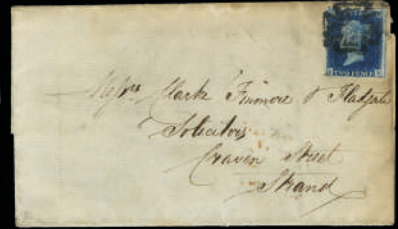 TWO PENCE
Messrs Clark Finmore & Fladgate
Solicitors
Craven Street
Strand